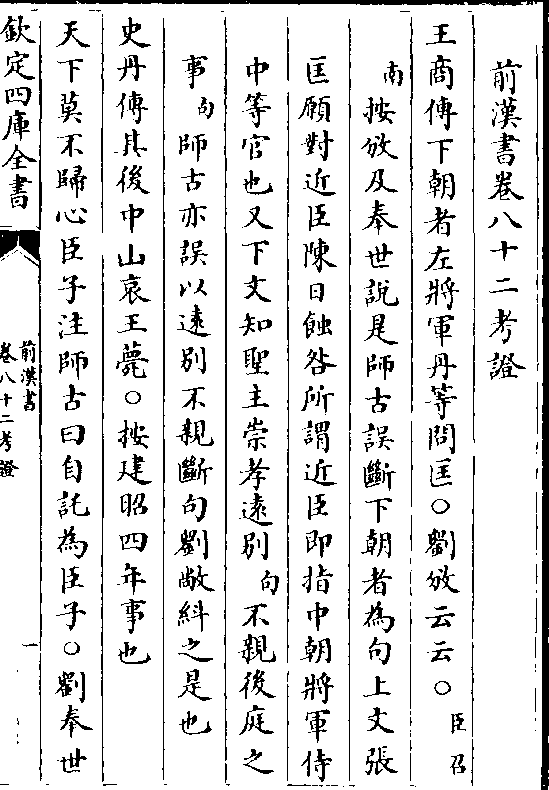 前漢書卷八十二考證
王商傳下朝者左將軍丹等問匡○劉攽云云○臣召
南按攽及奉世說是師古誤斷下朝者為句上文張
匡願對近臣陳日蝕咎所謂近臣即指中朝將軍侍
中等官也又下文知聖主崇孝遠別句不親後庭之
事句師古亦誤以遠別不親斷句劉敞糾之是也
史丹傳其後中山哀王薨○按建昭四年事也
天下莫不歸心臣子注師古曰自託為臣子○劉奉世
欽定四庫全書
前漢書
卷八十二考證
一